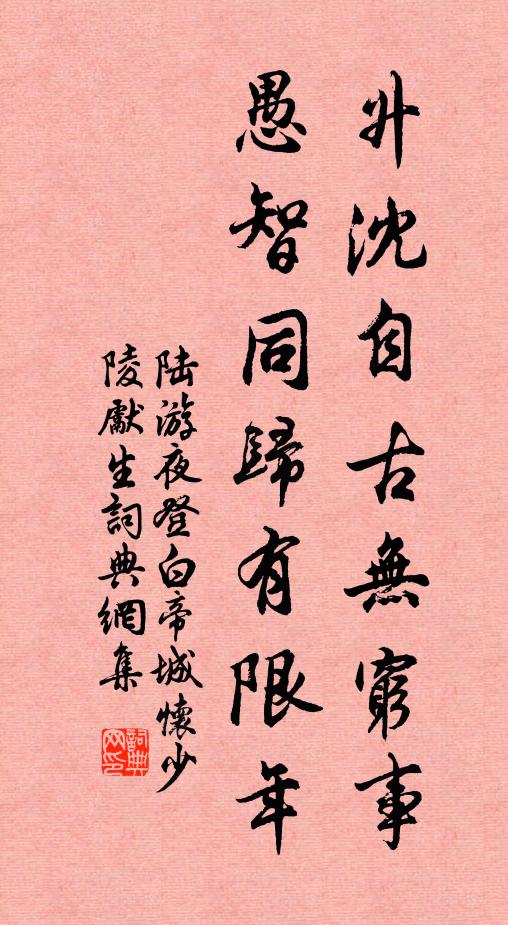 升沈自古無窮事
愚智同歸有限年
陆游夜登白帝城懷少
陵獻生詞典網集
詞典网印